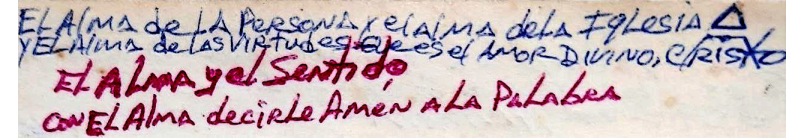 EL Alma de LA Persona y el alma de la Iglesia △
y EL Alma de las virtudes que es el Amor Divino, Cristo
El Alma y el Sentido
con El Alma decirle Amen a La Palabra